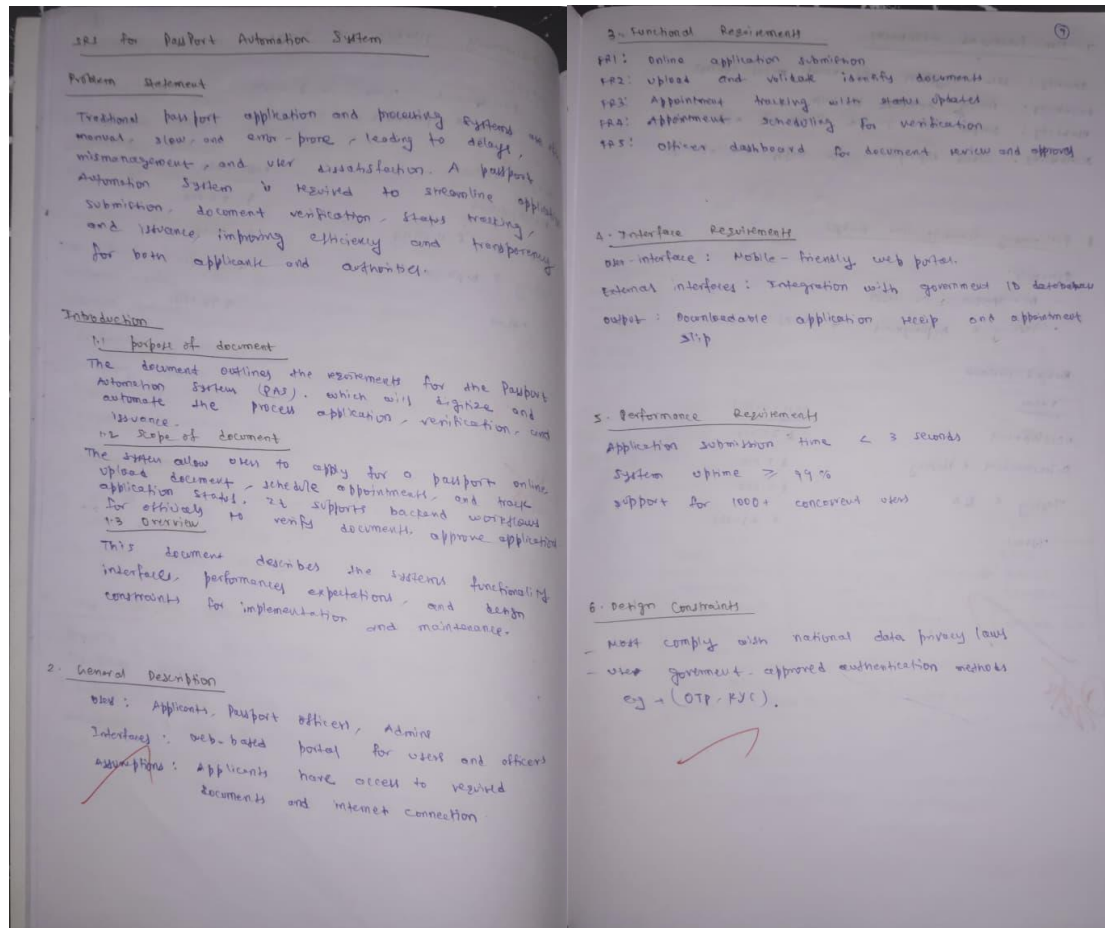 SRS for PassPort Automation System
Problem Statement
Traditional passport application and processing systems are
manual, slow, and error-prone, leading to delays,
mismanagement, and user dissatisfaction. A passport
Automation System is required to streamline
submission, document verification, status tracking,
and issuance, improving efficiency and transparency
for both applicants and authorities.
Introduction
1.1 purpose of document
The document outlines the requirements for the Passport
Automation System (PAS), which will digitize and
automate the process application, verification, and
issuance.
1.2 Scope of document
The system allow users to apply for a passport online
upload document, schedule appointments, and track
application status. It supports backend workflows
for officials to verify documents, approve application
1.3 Overview
This document describes the systems functionality
interfaces, performances expectations, and design
constraints for implementation and maintenance.
2. General Description
User: Applicants, Passport officers, Admins
Interfaces: web-based portal for users and officers
Assumptions: Applicants have access to required
documents and internet connection
3. Functional Requirements
FR1: Online application submission
FR2: upload and validate identify documents
FR3: Appointment tracking with status updates
FR4: Appointment scheduling for verification
FR5: Officer dashboard for document review and approval
4. Interface Requirements
User-interface: Mobile-friendly web portal.
External interfaces: Integration with government ID databases
output: Downloadable application receip and appointment
slip
5. Performance Requirements
Application submission time < 3 seconds
System uptime ≥ 99%
support for 1000+ concurrent users
6. Design Constraints
- Must comply with national data privacy laws
- user goverment. approved authentication methods
eg → (OTP, KYC).